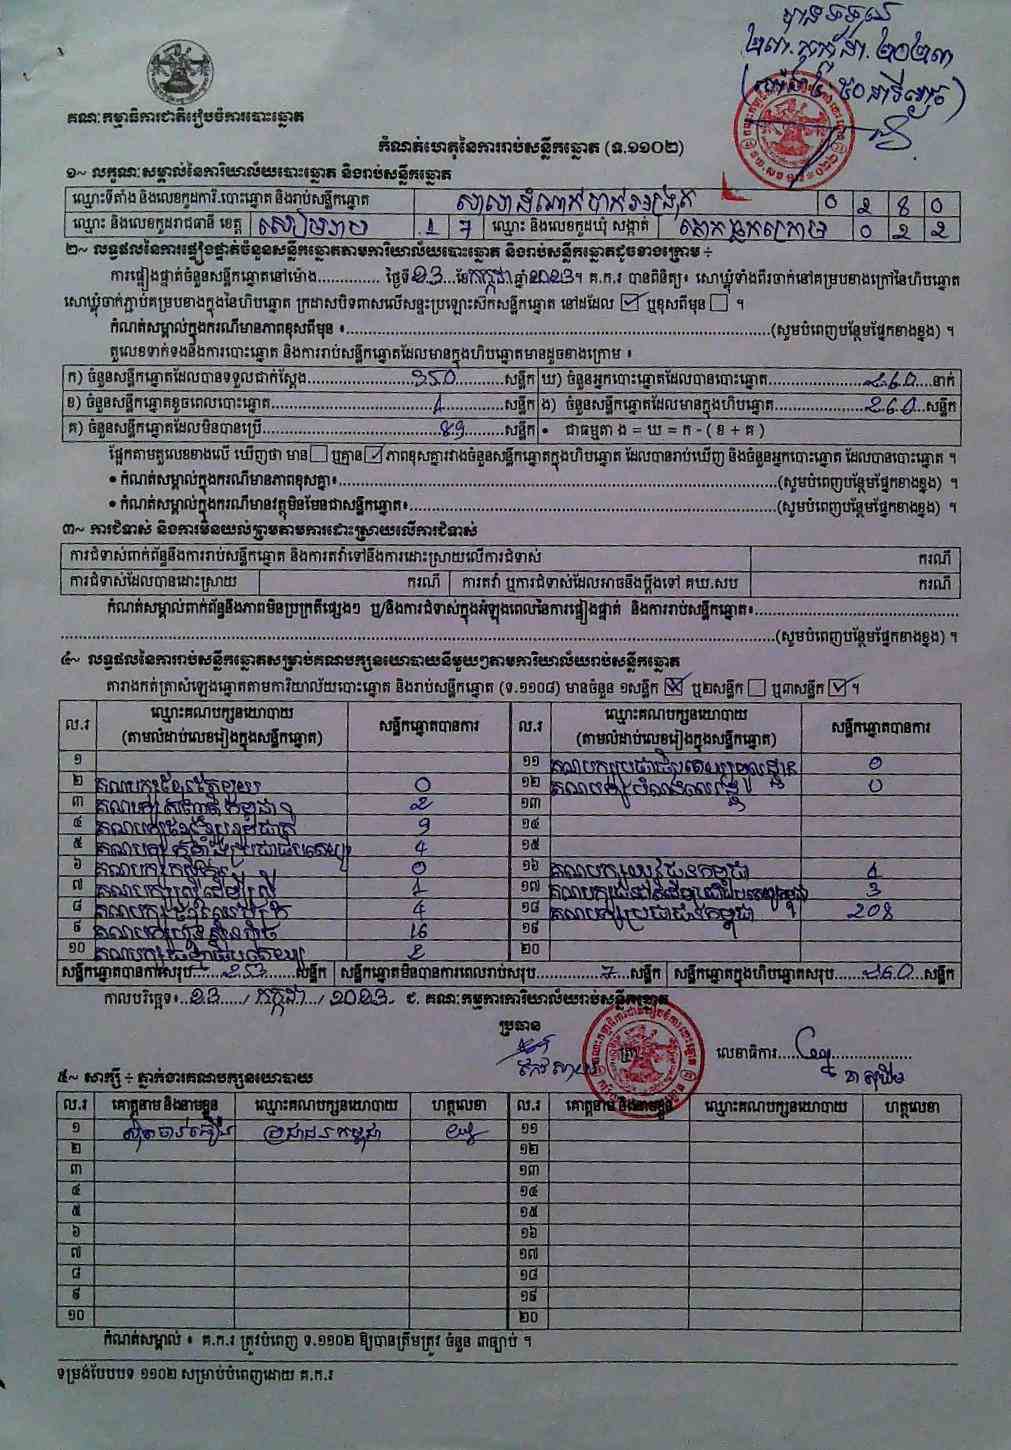 បានទទួល
២៣.កក្កដា.២០២៣
គណៈកម្មាធិការជាតិរៀបចំការបោះឆ្នោត
កំណត់ហេតុនៃការរាប់សន្លឹកឆ្នោត (ទ.១១០២)
១~ លក្ខណៈសម្គាល់នៃការិយាល័យបោះឆ្នោត និងរាប់សន្លឹកឆ្នោត
ឈ្មោះទីតាំង និងលេខកូដការិ.បោះឆ្នោត និងរាប់សន្លឹកឆ្នោត 0 2 8 0
ឈ្មោះ និងលេខកូដរាជធានី ខេត្ត សៀមរាប 1 7 ឈ្មោះ និងលេខកូដឃុំ សង្កាត់ គោកធ្លកក្រោម 0 2 2
២~ លទ្ធផលនៃការផ្ទៀងផ្ទាត់ចំនួនសន្លឹកឆ្នោតតាមការិយាល័យបោះឆ្នោត និងរាប់សន្លឹកឆ្នោតដូចខាងក្រោម ÷
ការផ្ទៀងផ្ទាត់ចំនួនសន្លឹកឆ្នោតនៅម៉ោង.............. ថ្ងៃទី23...ខែកក្កដាឆ្នាំ2023។ គ.ក.រ បានពិនិត្យ៖ សោឃ្លុំទាំងពីរចាក់នៅគម្របខាងក្រៅនៃហិបឆ្នោត
សោឃ្លុំចាក់ភ្ជាប់គម្របខាងក្នុងនៃហិបឆ្នោត ក្រដាសបិទពាសលើសន្ទះប្រឡោះស៊កសន្លឹកឆ្នោត នៅដដែល ☑ ឬខុសពីមុន ☐ ។
កំណត់សម្គាល់ក្នុងករណីមានភាពខុសពីមុន ៖...(សូមបំពេញបន្ថែមផ្នែកខាងខ្នង) ។
តួលេខទាក់ទងនឹងការបោះឆ្នោត និងការរាប់សន្លឹកឆ្នោតដែលមានក្នុងហិបឆ្នោតមានដូចខាងក្រោម ៖
ក) ចំនួនសន្លឹកឆ្នោតដែលបានទទួលជាក់ស្តែង...350...សន្លឹក ឃ) ចំនួនអ្នកបោះឆ្នោតដែលបានបោះឆ្នោត...260...នាក់
ខ) ចំនួនសន្លឹកឆ្នោតខូចពេលបោះឆ្នោត...1...សន្លឹក ង) ចំនួនសន្លឹកឆ្នោតដែលមានក្នុងហិបឆ្នោត...260...សន្លឹក
គ) ចំនួនសន្លឹកឆ្នោតដែលមិនបានប្រើ...89...សន្លឹក • ជាធម្មតា ង = ឃ = ក - ( ខ + គ )
ផ្អែកតាមតួលេខខាងលើ ឃើញថា មាន ☐ ឬគ្មាន ☑ ភាពខុសគ្នារវាងចំនួនសន្លឹកឆ្នោតក្នុងហិបឆ្នោត ដែលបានរាប់ឃើញ និងចំនួនអ្នកបោះឆ្នោត ដែលបានបោះឆ្នោត ។
• កំណត់សម្គាល់ក្នុងករណីមានភាពខុសគ្នា៖...(សូមបំពេញបន្ថែមផ្នែកខាងខ្នង) ។
• កំណត់សម្គាល់ក្នុងករណីមានវត្ថុមិនមែនជាសន្លឹកឆ្នោត៖...(សូមបំពេញបន្ថែមផ្នែកខាងខ្នង) ។
៣~ ការជំទាស់ និងការមិនយល់ព្រមតាមការដោះស្រាយលើការជំទាស់
ការជំទាស់ពាក់ព័ន្ធនឹងការរាប់សន្លឹកឆ្នោត និងការតវ៉ាទៅនឹងការដោះស្រាយលើការជំទាស់ ករណី
ការជំទាស់ដែលបានដោះស្រាយ ករណី ការតវ៉ា ឬការជំទាស់ដែលអាចនឹងប្តឹងទៅ គឃ.សប ករណី
កំណត់សម្គាល់ពាក់ព័ន្ធនឹងភាពមិនប្រក្រតីផ្សេងៗ ឬ/និងការជំទាស់ក្នុងអំឡុងពេលនៃការផ្ទៀងផ្ទាត់ និងការរាប់សន្លឹកឆ្នោត៖...
...(សូមបំពេញបន្ថែមផ្នែកខាងខ្នង) ។
៤~ លទ្ធផលនៃការរាប់សន្លឹកឆ្នោតសម្រាប់គណបក្សនយោបាយនីមួយៗតាមការិយាល័យរាប់សន្លឹកឆ្នោត
តារាងកត់ត្រាសំឡេងឆ្នោតតាមការិយាល័យបោះឆ្នោត និងរាប់សន្លឹកឆ្នោត (ទ.១១០៨) មានចំនួន ១សន្លឹក ☒ ឬ២សន្លឹក ☐ ឬ៣សន្លឹក ☑ ។
ល.រ ឈ្មោះគណបក្សនយោបាយ (តាមលំដាប់លេខរៀងក្នុងសន្លឹកឆ្នោត) សន្លឹកឆ្នោតបានការ ល.រ ឈ្មោះគណបក្សនយោបាយ (តាមលំដាប់លេខរៀងក្នុងសន្លឹកឆ្នោត) សន្លឹកឆ្នោតបានការ
១ ១១ គណបក្សប្រជាធិបតេយ្យមូលដ្ឋាន 0
២ គណបក្សខ្មែរតែមួយ 0 ១២ គណបក្ស 0
៣ គណបក្ស កម្ពុជា 2 ១៣
៤ គណបក្ស 9 ១៤
៥ គណបក្ស ប្រជាធិបតេយ្យ 4 ១៥
៦ គណបក្សកសិករ 0 ១៦ គណបក្សយុវជនកម្ពុជា 1
៧ គណបក្សស្ត្រីដើម្បីស្ត្រី 1 ១៧ គណបក្ស 3
៨ គណបក្ស 4 ១៨ គណបក្សប្រជាជនកម្ពុជា 208
៩ គណបក្ស 16 ១៩
១០ គណបក្សធម្មាធិបតេយ្យ 2 ២០
សន្លឹកឆ្នោតបានការសរុប...253...សន្លឹក សន្លឹកឆ្នោតមិនបានការពេលរាប់សរុប...7...សន្លឹក សន្លឹកឆ្នោតក្នុងហិបឆ្នោតសរុប...260...សន្លឹក
កាលបរិច្ឆេទ៖ 23 / កក្កដា / 2023 ជ. គណៈកម្មការការិយាល័យរាប់សន្លឹកឆ្នោត
ប្រធាន
លេខាធិការ
៥~ សាក្សី ÷ ភ្នាក់ងារគណបក្សនយោបាយ
ល.រ គោត្តនាម និងនាមខ្លួន ឈ្មោះគណបក្សនយោបាយ ហត្ថលេខា ល.រ គោត្តនាម និងនាមខ្លួន ឈ្មោះគណបក្សនយោបាយ ហត្ថលេខា
១ ប្រជាជនកម្ពុជា ១១
២ ១២
៣ ១៣
៤ ១៤
៥ ១៥
៦ ១៦
៧ ១៧
៨ ១៨
៩ ១៩
១០ ២០
កំណត់សម្គាល់ ៖ គ.ក.រ ត្រូវបំពេញ ទ.១១០២ ឱ្យបានត្រឹមត្រូវ ចំនួន ៣ច្បាប់ ។
ទម្រង់បែបបទ ១១០២ សម្រាប់បំពេញដោយ គ.ក.រ